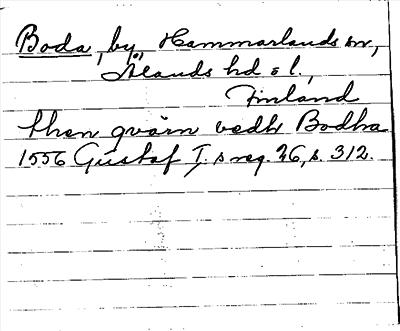 Boda, by, Hammarlands sn,
Ålands hd o l.,
Finland
then qvärn vedh Bodha
1556 Gustaf I:s reg. 26, s. 312.